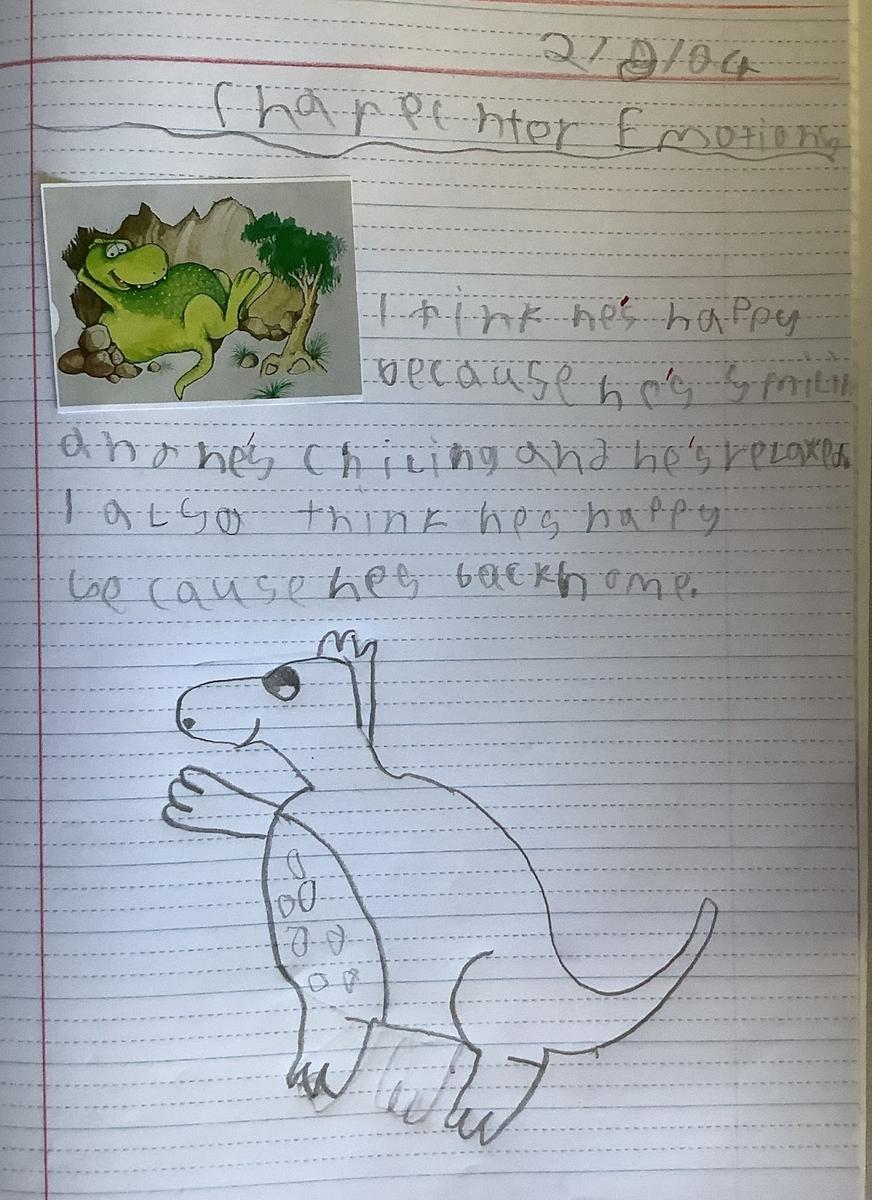 2/8/04
Charechter Emotions
I think he's happy
because he's smilin
and he's chiling and he's relaxed.
I also think hes happy
because hes back home.